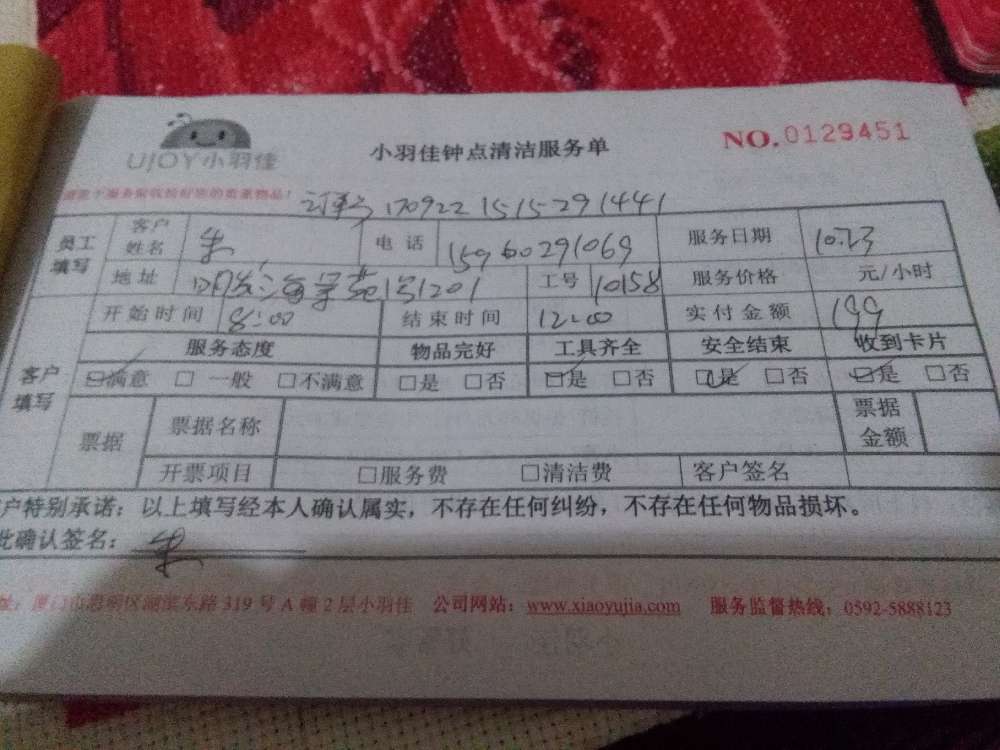 UJOY小羽佳
小羽佳钟点清洁服务单
NO.0129451
订单号 170922 1515291441
员工填写 客户姓名 朱 电话 15960291069 服务日期 10.23
地址 海景苑1号1201 工号 10158 服务价格 元/小时
开始时间 8:00 结束时间 12:00 实付金额 199
客户填写 服务态度 物品完好 工具齐全 安全结束 收到卡片
☑满意 □一般 □不满意 □是 □否 ☑是 □否 ☑是 □否 ☑是 □否
票据 票据名称 票据金额
开票项目 □服务费 □清洁费 客户签名
户特别承诺：以上填写经本人确认属实，不存在任何纠纷，不存在任何物品损坏。
此确认签名： 朱
址：厦门市思明区湖滨东路319号A幢2层小羽佳 公司网站：www.xiaoyujia.com 服务监督热线：0592-5888123